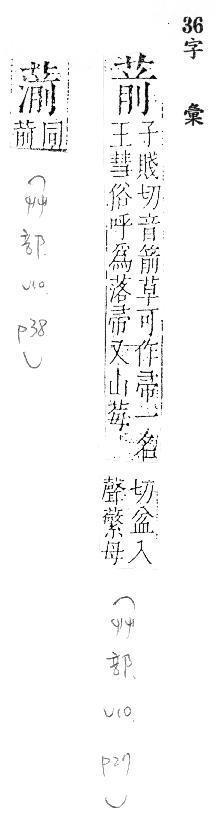 36字 彙
葥
子賤切音箭草可作帚一名
王彗俗呼爲落帚又山莓
切盆入
聲蘩母
(艸部 v10. p27)
同葥
(艸部 v10. p38)